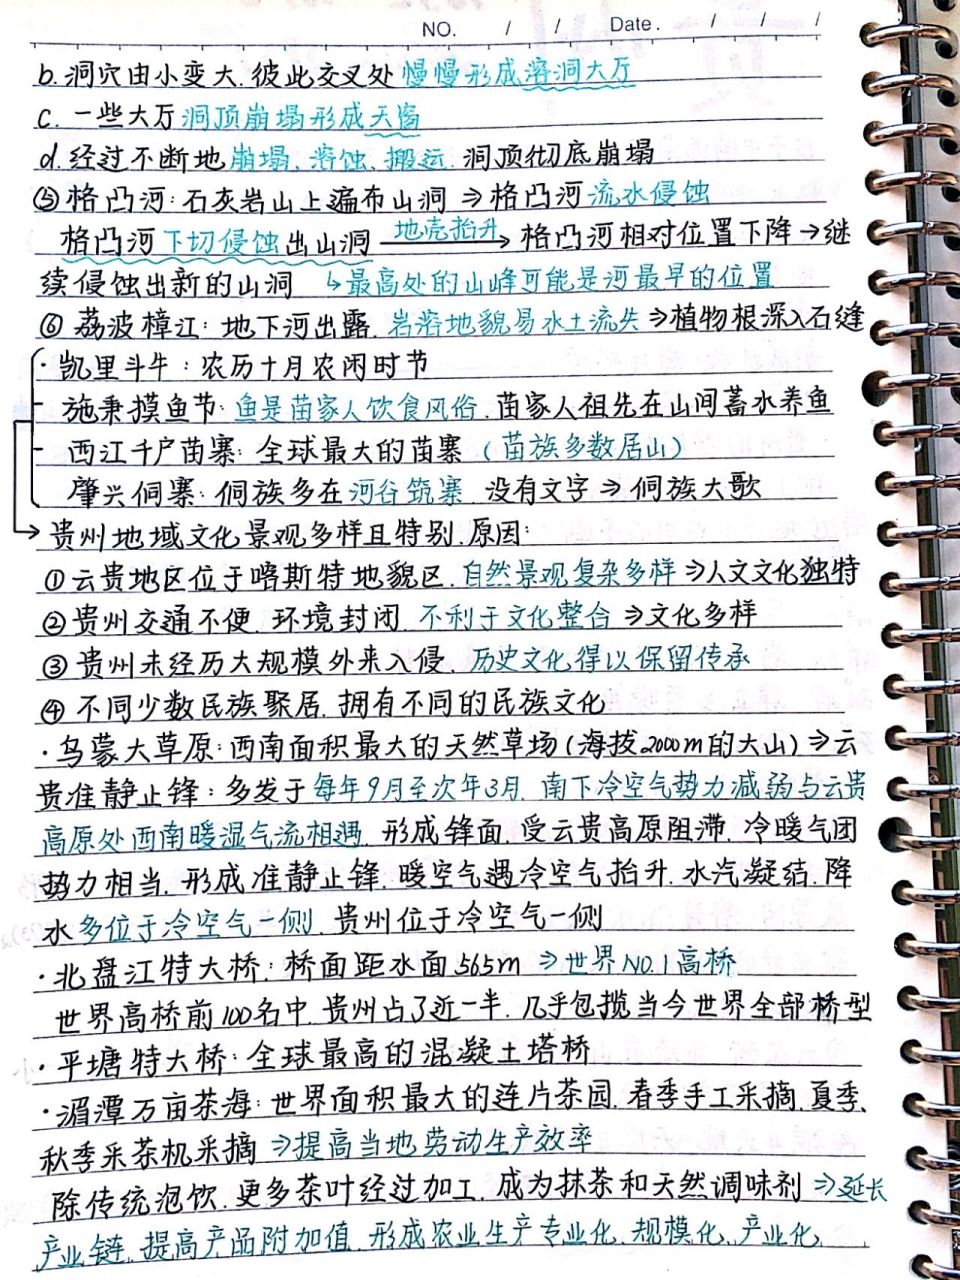 NO. / / Date. / / /
b. 洞穴由小变大.彼此交叉处 慢慢形成溶洞大厅
c. 一些大厅 洞顶崩塌形成天窗
d. 经过不断地 崩塌、溶蚀、搬运.洞顶彻底崩塌
⑤格凸河:石灰岩山上遍布山洞 ⇒ 格凸河 流水侵蚀
格凸河 下切侵蚀出山洞 地壳抬升→ 格凸河相对位置下降→继
续侵蚀出新的山洞 ↳最高处的山峰可能是河最早的位置
⑥荔波樟江:地下河出露.岩溶地貌易水土流失⇒植物根深入石缝
·凯里斗牛:农历十月农闲时节
施秉摸鱼节:鱼是苗家人饮食风俗.苗家人祖先在山间蓄水养鱼
西江千户苗寨:全球最大的苗寨(苗族多数居山)
肇兴侗寨:侗族多在河谷筑寨 没有文字⇒侗族大歌
→贵州地域文化景观多样且特别.原因:
①云贵地区位于喀斯特地貌区.自然景观复杂多样⇒人文文化独特
②贵州交通不便.环境封闭.不利于文化整合⇒文化多样
③贵州未经历大规模外来入侵.历史文化得以保留传承
④不同少数民族聚居.拥有不同的民族文化
·乌蒙大草原:西南面积最大的天然草场(海拔2000m的大山)⇒云
贵准静止锋:多发于每年9月至次年3月.南下冷空气势力减弱与云贵
高原处西南暖湿气流相遇.形成锋面.受云贵高原阻滞.冷暖气团
势力相当.形成准静止锋.暖空气遇冷空气抬升.水汽凝结.降
水多位于冷空气一侧.贵州位于冷空气一侧
·北盘江特大桥:桥面距水面565m ⇒世界NO.1高桥
世界高桥前100名中.贵州占了近一半.几乎包揽当今世界全部桥型
·平塘特大桥:全球最高的混凝土塔桥
·湄潭万亩茶海:世界面积最大的连片茶园.春季手工采摘.夏季、
秋季采茶机采摘⇒提高当地劳动生产效率
除传统泡饮.更多茶叶经过加工.成为抹茶和天然调味剂⇒延长
产业链.提高产品附加值.形成农业生产专业化、规模化、产业化.